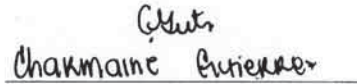 Charmaine Gutierrez